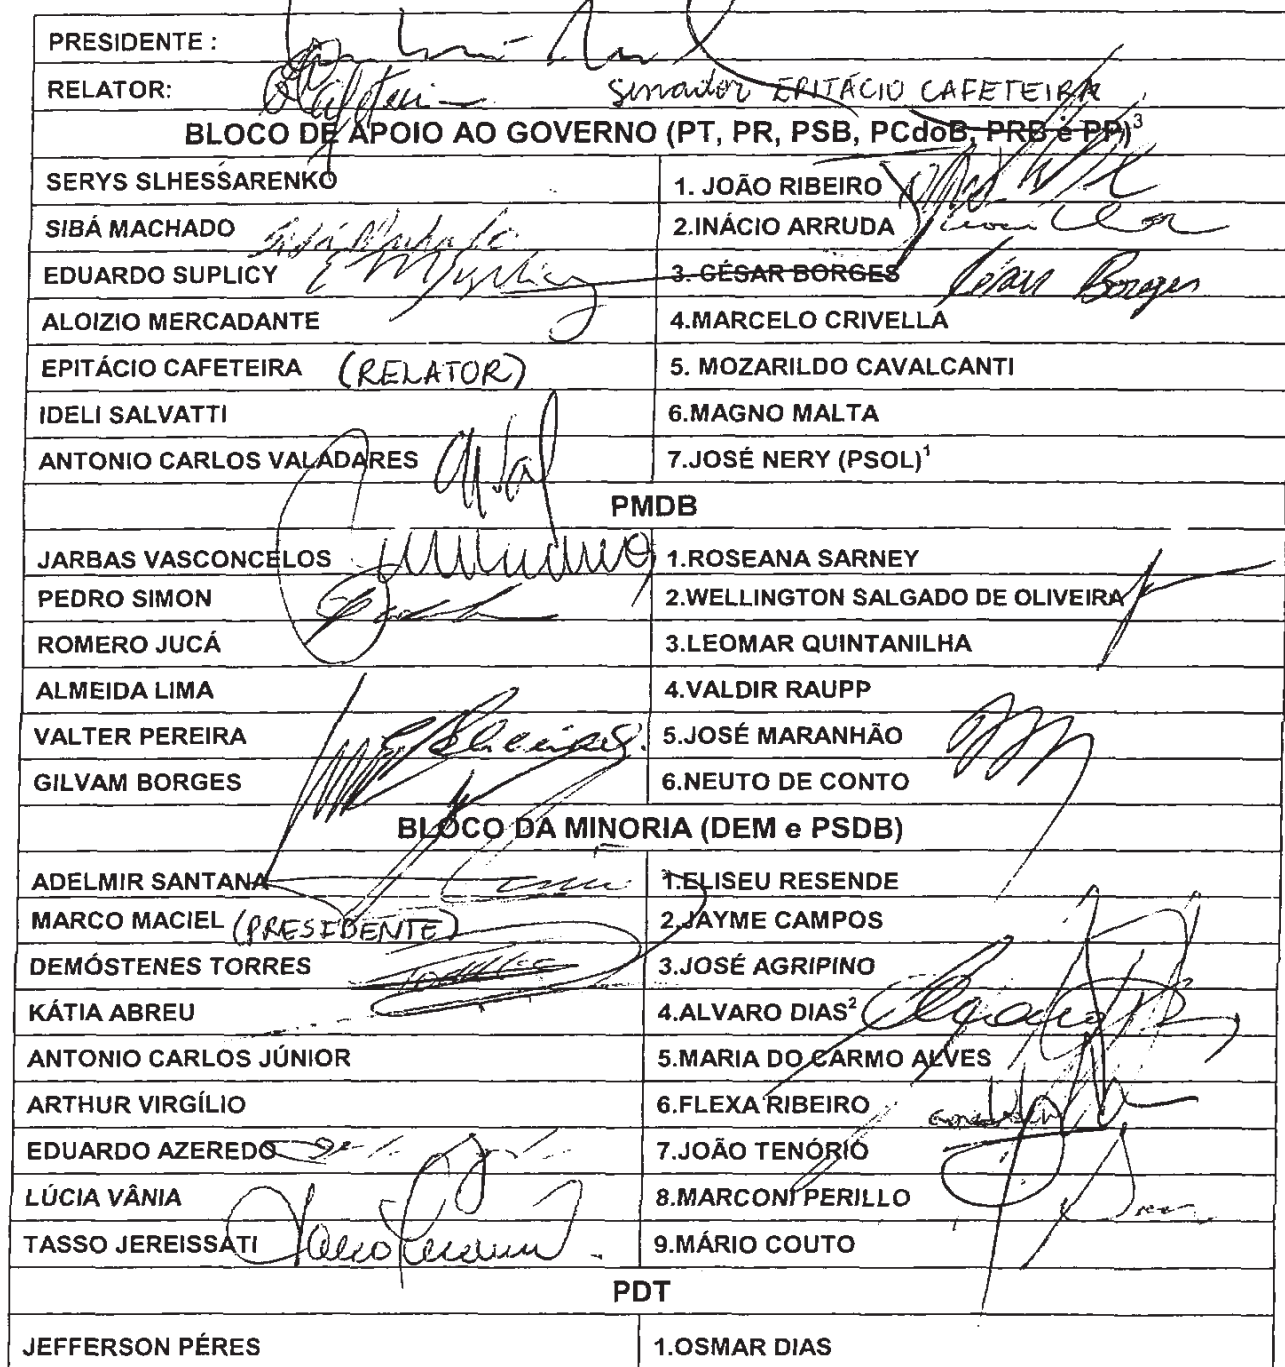 PRESIDENTE :
RELATOR: Senador EPITÁCIO CAFETEIRA
BLOCO DE APOIO AO GOVERNO (PT, PR, PSB, PCdoB, PRB e PP)³
SERYS SLHESSARENKO 1. JOÃO RIBEIRO
SIBÁ MACHADO Sibá Machado 2.INÁCIO ARRUDA
EDUARDO SUPLICY 3. CÉSAR BORGES César Borges
ALOIZIO MERCADANTE 4.MARCELO CRIVELLA
EPITÁCIO CAFETEIRA (RELATOR) 5. MOZARILDO CAVALCANTI
IDELI SALVATTI 6.MAGNO MALTA
ANTONIO CARLOS VALADARES 7.JOSÉ NERY (PSOL)¹
PMDB
JARBAS VASCONCELOS 1.ROSEANA SARNEY
PEDRO SIMON 2.WELLINGTON SALGADO DE OLIVEIRA
ROMERO JUCÁ 3.LEOMAR QUINTANILHA
ALMEIDA LIMA 4.VALDIR RAUPP
VALTER PEREIRA 5.JOSÉ MARANHÃO
GILVAM BORGES 6.NEUTO DE CONTO
BLOCO DA MINORIA (DEM e PSDB)
ADELMIR SANTANA 1.ELISEU RESENDE
MARCO MACIEL (PRESIDENTE) 2.JAYME CAMPOS
DEMÓSTENES TORRES 3.JOSÉ AGRIPINO
KÁTIA ABREU 4.ALVARO DIAS²
ANTONIO CARLOS JÚNIOR 5.MARIA DO CARMO ALVES
ARTHUR VIRGÍLIO 6.FLEXA RIBEIRO
EDUARDO AZEREDO 7.JOÃO TENÓRIO
LÚCIA VÂNIA 8.MARCONI PERILLO
TASSO JEREISSATI 9.MÁRIO COUTO
PDT
JEFFERSON PÉRES 1.OSMAR DIAS